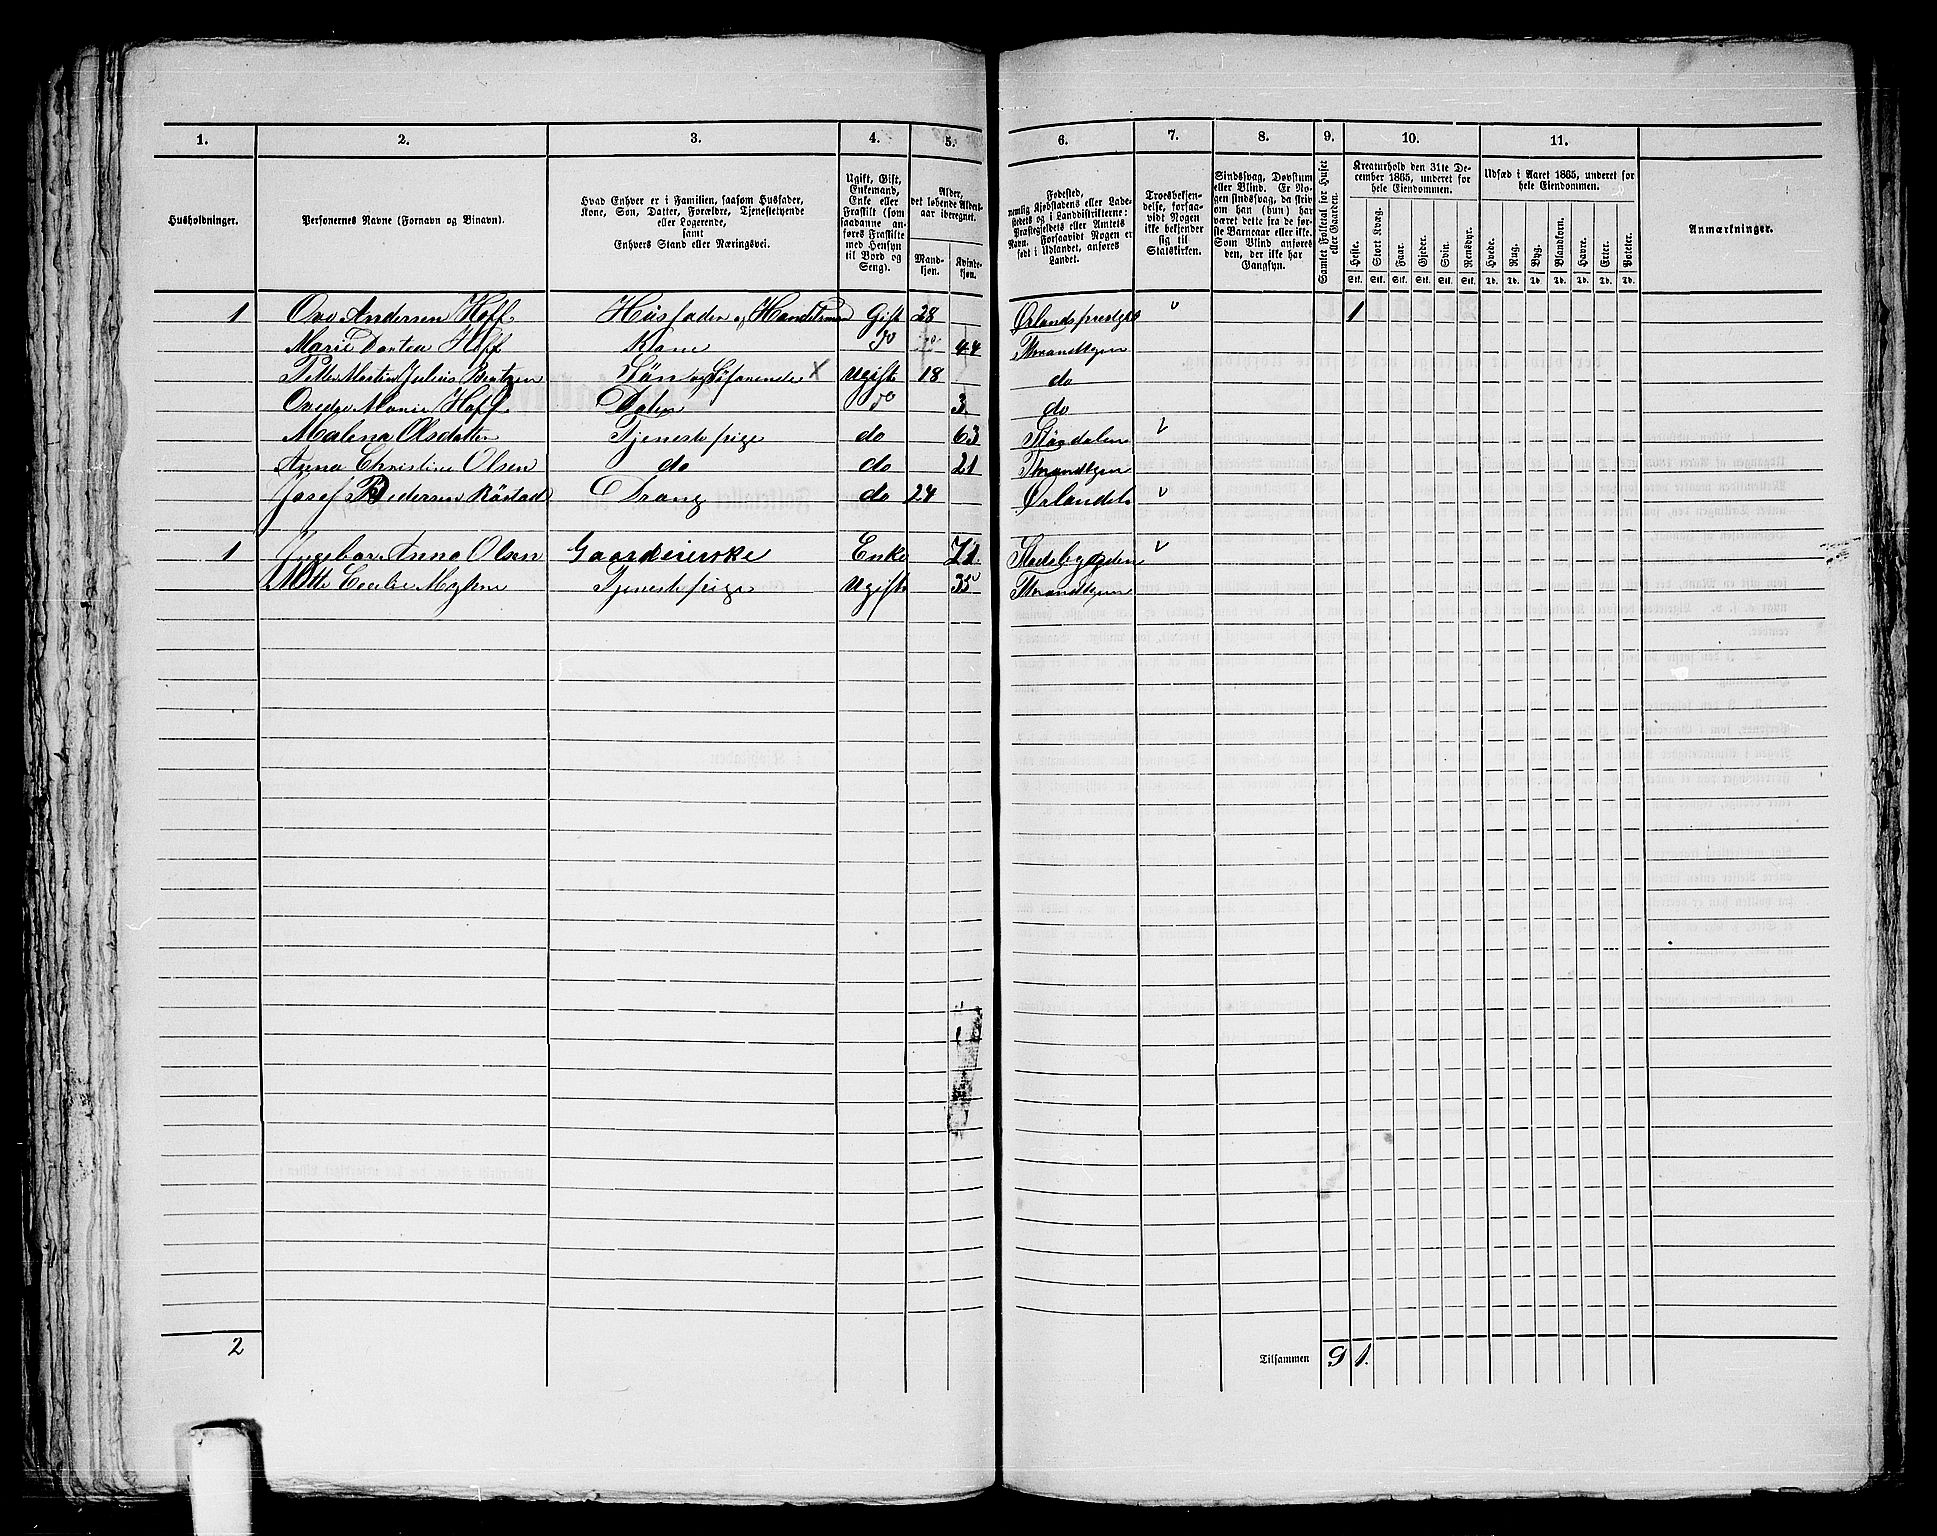 1. 2. 3. 4. 5. 6. 7. 8. 9. 10. 11.
Husholdninger.
Personernes Navne (Fornavn og Binavn).
Hvad Enhver er i Familien, saasom Husfader,
Kone, Søn, Datter, Forældre, Tjenestetyende
eller Logerende,
samt
Enhvers Stand eller Næringsvei.
Ugift, Gift,
Enkemand,
Enke eller
Fraskilt (som
saadanne an-
føres Fraskilte
med Hensyn
til Bord og
Seng).
Alder,
det løbende Alders-
aar iberegnet.
Mand-
kjøn.
Kvinde-
kjøn.
Fødested,
nemlig Kjøbstadens eller Lade-
stedets og i Landdistrikterne:
Præstegjeldets eller Amtets
Navn. Forsaavidt Nogen er
født i Udlandet, anføres
Landet.
Troesbekjen-
delse, forsaa-
vidt Nogen
ikke bekjender
sig til
Statskirken.
Sindssvag, Døvstum
eller Blind. Er No-
gen sindssvag, da skriv
om han (hun) har
været dette fra de før-
ste Barneaar eller ikke.
Som Blind anføres
den, der ikke har
Gangsyn.
Samlet Folketal for Huset
eller Gaarden.
Kreaturhold den 31te De-
cember 1865, underet for
hele Eiendommen.
Heste. Stort Kvæg. Faar. Gjeder. Svin. Rensdyr.
Stk. Stk. Stk. Stk. Stk. Stk.
Udsæd i Aaret 1865, underet for
hele Eiendommen.
Hvede. Rug. Byg. Blandkorn. Havre. Erter. Poteter.
Td. Td. Td. Td. Td. Td. Td.
Anmærkninger.
1 Ove Andersen Hoff Husfader og Handelsmand Gift 28 Ørlandspræstgj 1
Marie Dortea Hoff Kone do 44 Throndhjem
Petter Martin Julius Berntzen Søn og Søfarende X Ugift 18 do
Ovedie Marie Hoff Daten do 3 do
Malena Olsdatter Tjenestepige do 63 Størdalen
Anna Christine Olsen do do 21 Throndhjem
Josef Pedersen Röstad Dreng do 24 Ørlandet
1 Ingebor Anna Olsen Gaardeierske Enke 71 Stadsbygden
Mette Cecilie Myhre Tjenestepige Ugift 35 Throndhjem
2
Tilsammen 9 1.